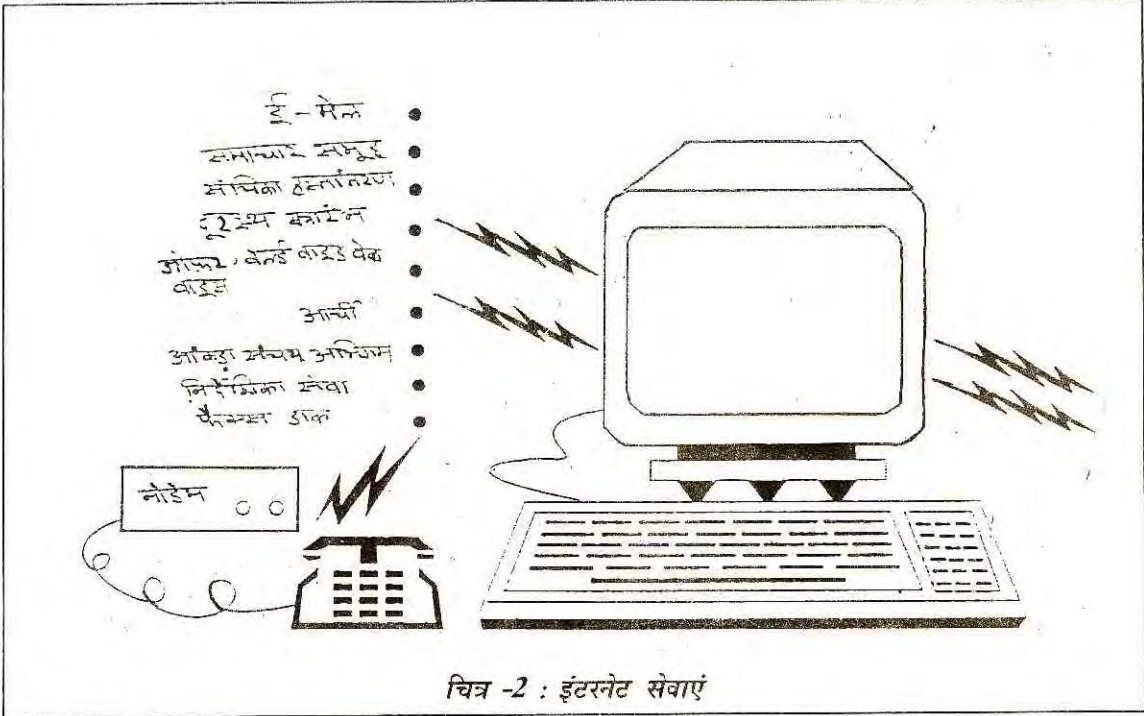 ई-मेल
समाचार समूह
संचिका हस्तांतरण
दूरस्थ
गोफर, वर्ल्ड वाइड वेब
वाइस
आर्ची
आंकड़ा संचय अभिगम
निर्देशिका सेवा
फैक्स डाक
मोडेम
चित्र -2 : इंटरनेट सेवाएं